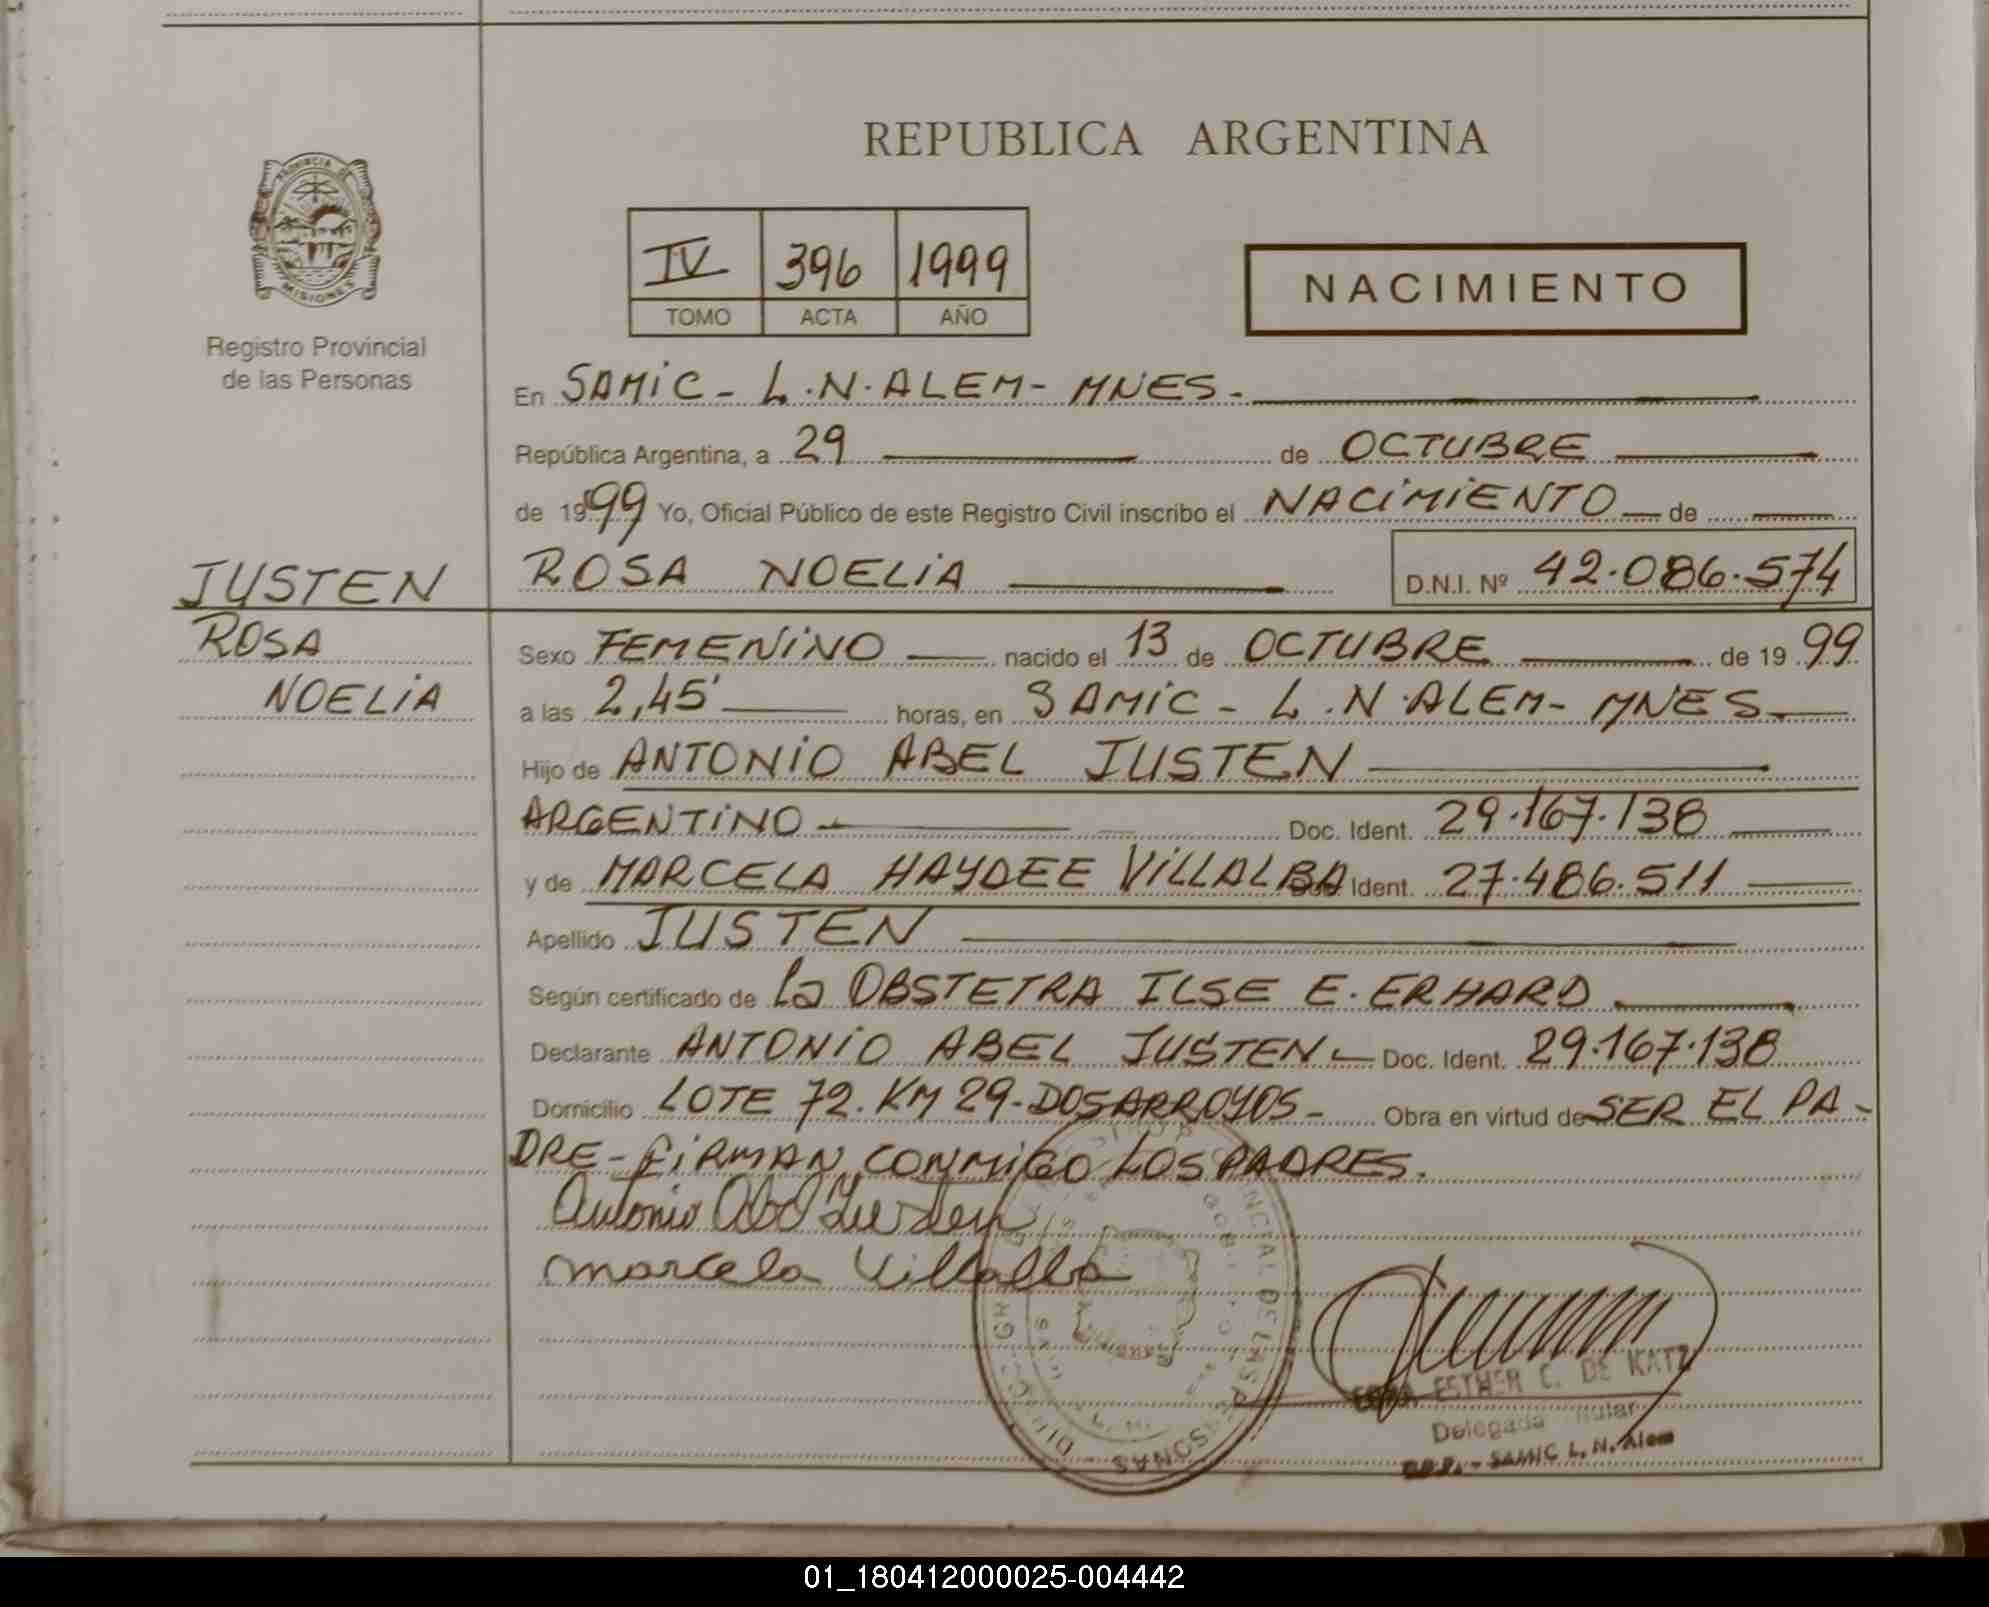 REPUBLICA ARGENTINA
PROVINCIA DE
MISIONES
Registro Provincial
de las Personas
IV 396 1999
TOMO ACTA AÑO
NACIMIENTO
En SAMIC - L.N. ALEM - MNES -
República Argentina, a 29 de OCTUBRE
de 1999 Yo, Oficial Público de este Registro Civil inscribo el NACIMIENTO de
JUSTEN
ROSA NOELIA D.N.I. Nº 42.086.574
ROSA
NOELIA
Sexo FEMENINO nacido el 13 de OCTUBRE de 1999
a las 2,45' horas, en SAMIC - L.N. ALEM - MNES
Hijo de ANTONIO ABEL JUSTEN
ARGENTINO Doc. Ident. 29.167.138
y de MARCELA HAYDEE VILLALBA Doc. Ident. 27.486.511
Apellido JUSTEN
Según certificado de la OBSTETRA ILSE E. ERHARD
Declarante ANTONIO ABEL JUSTEN Doc. Ident. 29.167.138
Domicilio LOTE 72. KM 29 - DOS ARROYOS - Obra en virtud de SER EL PA-
DRE - FIRMAN CONMIGO LOS PADRES.
Antonio Abel Justen
Marcela Villalba
ESTHER C. DE KATZ
Delegada
SAMIC L. N. Alem
01_180412000025-004442